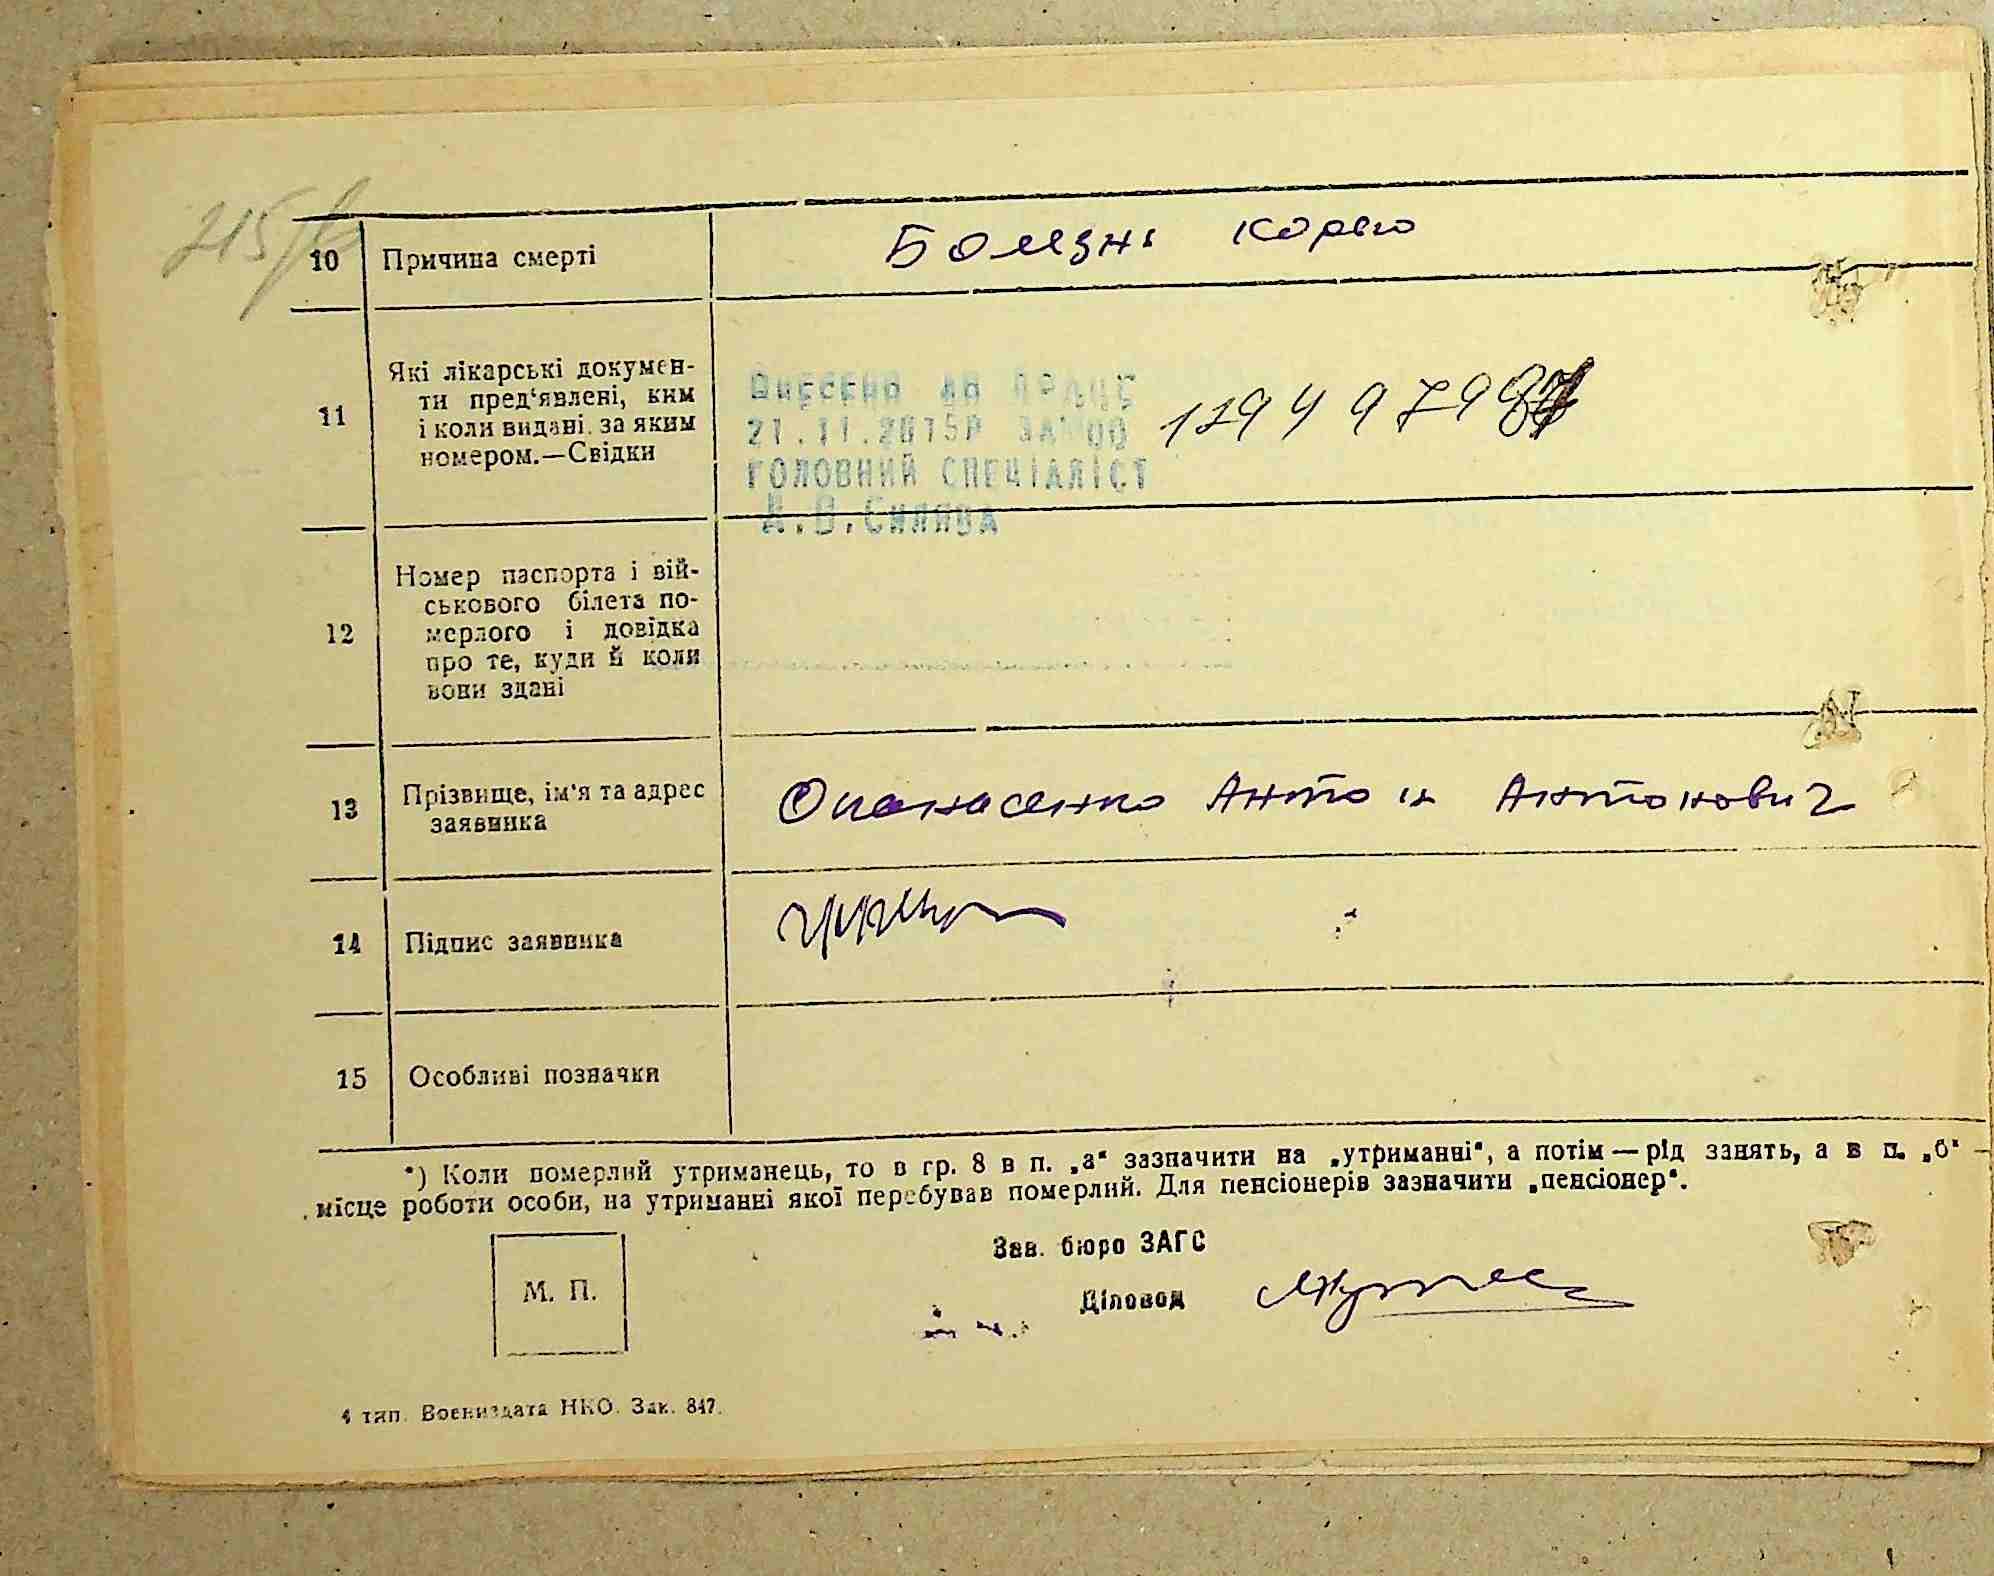 215/в
10 Причина смерті
Болзнь корью
11 Які лікарські докумен-
ти пред‘явлені, ким
і коли видані, за яким
номером.—Свідки
Внесено до ДРАЦС
21.11.2015р
ГОЛОВНИЙ СПЕЦІАЛІСТ
Силява
12 Номер паспорта і вій-
ськового білета по-
мерлого і довідка
про те, куди й коли
вони здані
13 Прізвище, ім‘я та адрес
заявника
Опанасенко Антон Антонович
14 Підпис заявника
15 Особливі позначки
*) Коли померлий утриманець, то в гр. 8 в п. „а“ зазначити на „утриманні“, а потім — рід занять, а в п. „б“ —
місце роботи особи, на утриманні якої перебував померлий. Для пенсіонерів зазначити „пенсіонер“.
Зав. бюро ЗАГС
М. П.
Діловод
4 тип. Воениздата НКО. Зак. 847.